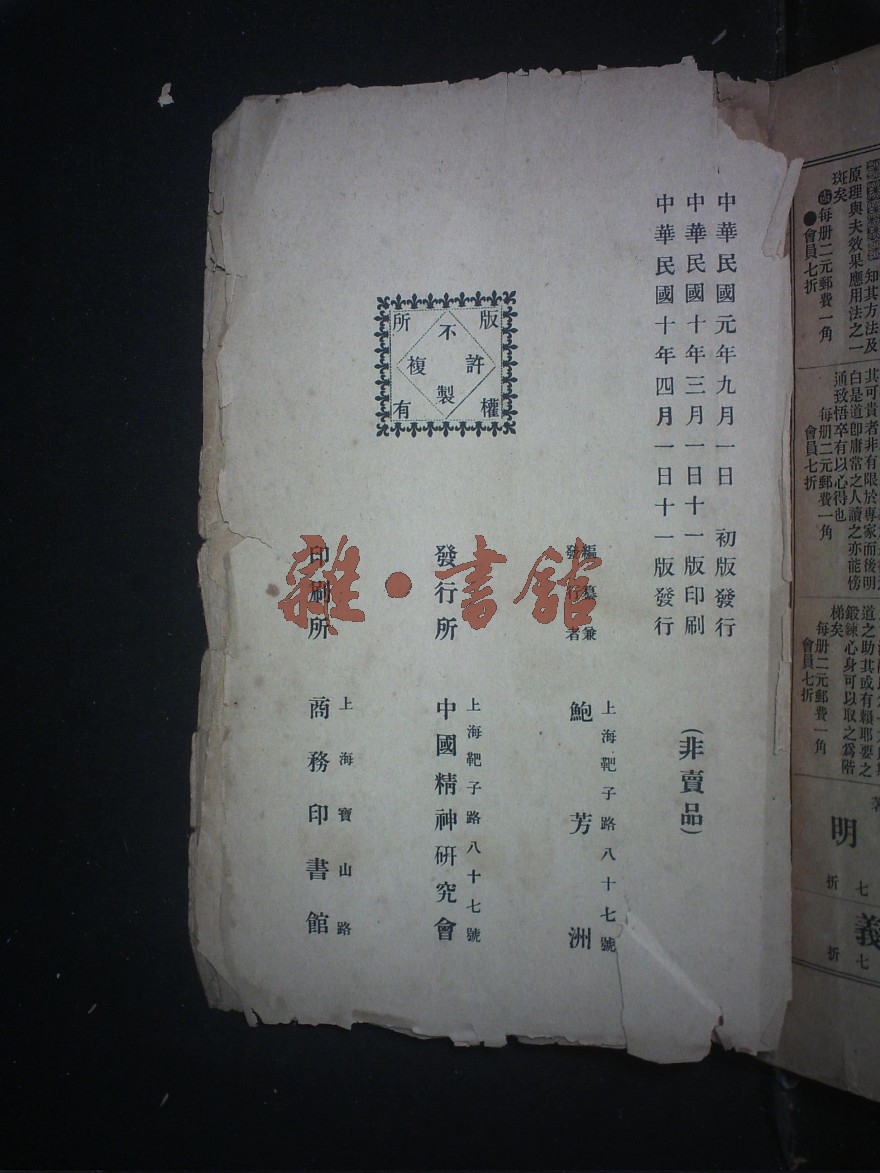 知其方法及
原理與夫效果應用法之一
斑矣
每册二元郵費一角
●會員七折
其可貴者非有限於專家而後明
白是道卽庸常之人讀之亦能傍
通致悟卒有以心得也
每册二元郵費一角
會員七折
道之助其或有賴耶要之
鍛鍊心身可以取之爲階
梯矣
每册二元郵費一角
會員七折
著
明
七折
義
七折
中華民國元年九月一日 初版發行
中華民國十年三月一日十一版印刷
中華民國十年四月一日十一版發行
(非賣品)
編纂兼
發行者
上海靶子路八十七號
鮑芳洲
發行所
上海靶子路八十七號
中國精神硏究會
印刷所
上海寶山路
商務印書館
版權所有
不許複製
雜·書館